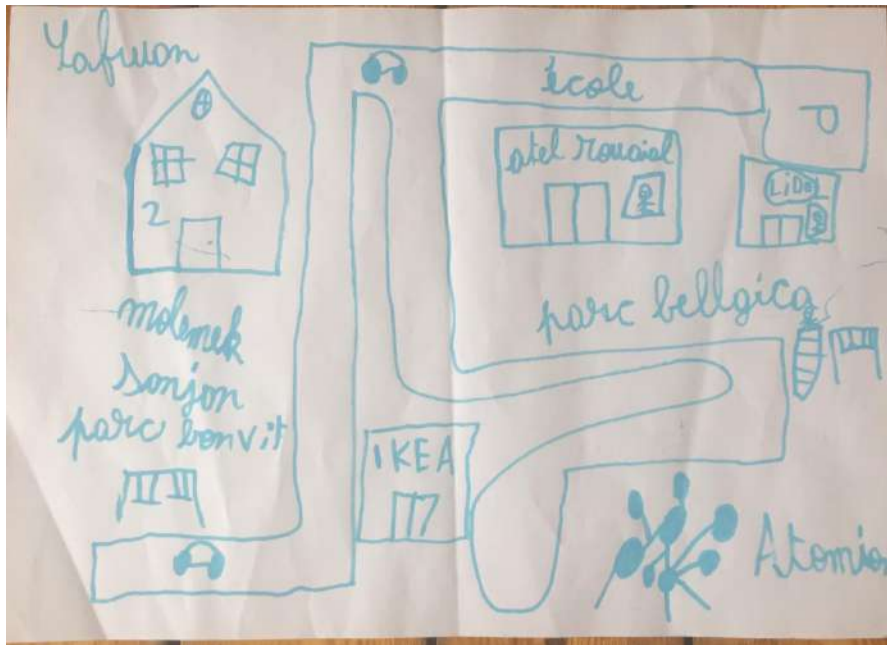 école
P
atel rouaial
2
molemek
sonjon
parc bonvit
parc bellgica
IKEA
Atomion